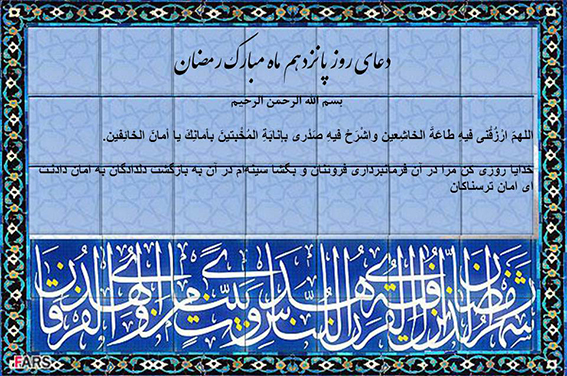 دعای روز پانزدهم ماه مبارک رمضان
بسم الله الرحمن الرحيم
اللهمّ ارْزُقْنی فیهِ طاعَةَ الخاشِعین واشْرَحْ فیهِ صَدْری بإنابَةِ المُخْبتینَ بأمانِکَ یا أمانَ الخائِفین.
خدایا روزی کن مرا در آن فرمانبرداری فروتنان و بگشا سینه‌ام در آن به بازگشت دلدادگان به امان دادنت
ای امان ترسناکان
شهر رمضان الذی انزل فیه القرآن هدی للناس و بینات من الهدی و الفرقان
FARS